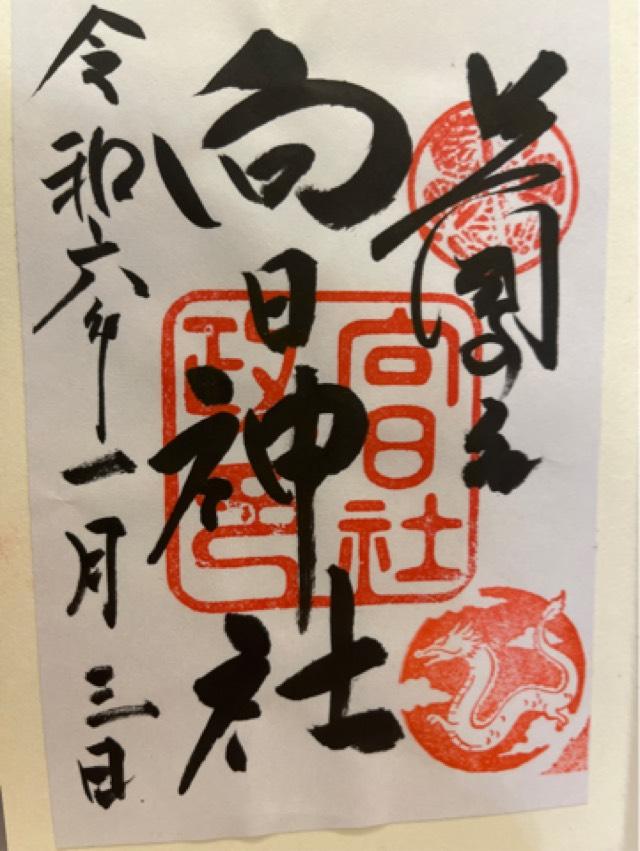 向日神社
令和六年一月三日
向日社
政印